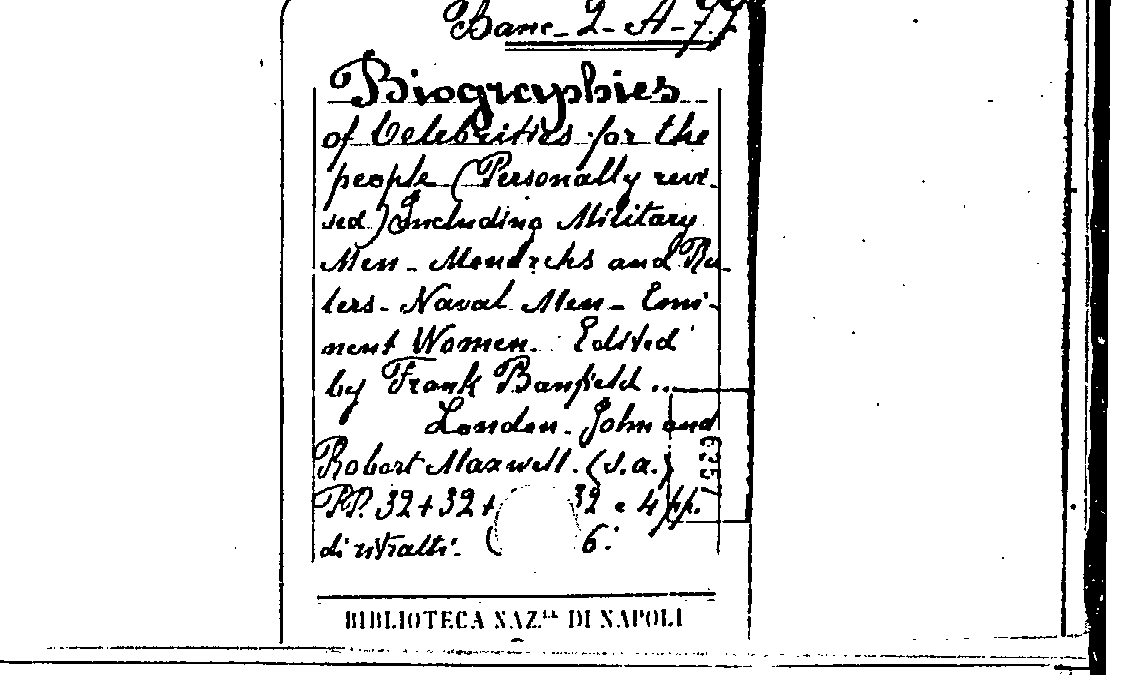 Banc- 2- A- 77
Biographies
of Celebrities for the
people (Personally revi-
sed) Including Military
Men - Monarchs and Ru-
lers - Naval Men - Emi-
nent Women. Edited
by Frank Banfield ...
London. John and
Robert Maxwell. (s.a.)
PP. 32+32+ 32 e 4 pp.
di ritratti. ( 6.
BIBLIOTECA NAZ.LE DI NAPOLI